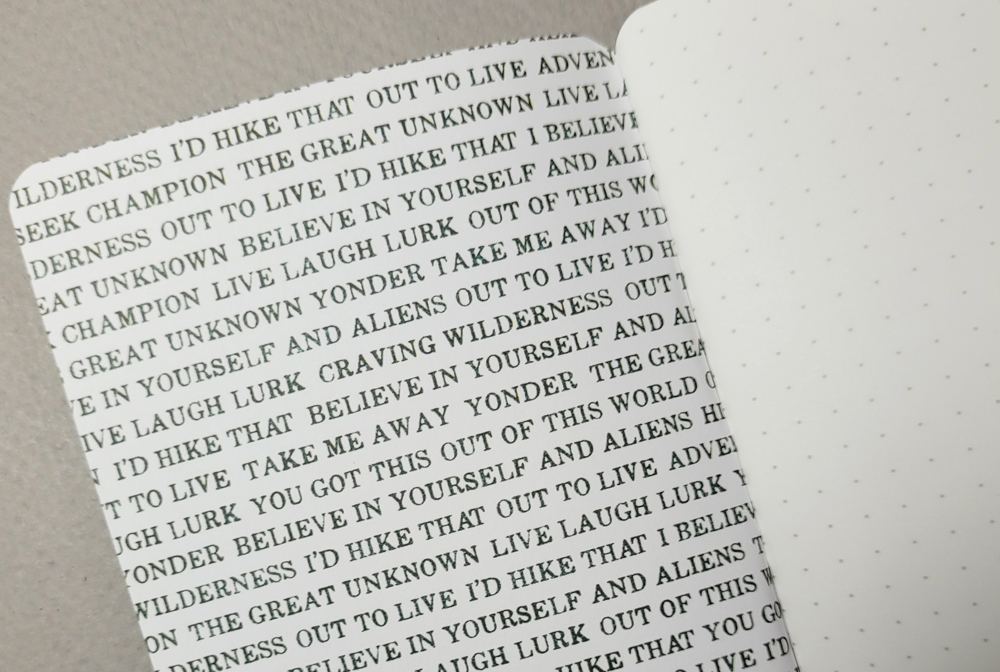 YOURSELF AND
WILDERNESS I'D HIKE THAT OUT TO LIVE ADVEN
SEEK CHAMPION THE GREAT UNKNOWN LIVE LA
DERNESS OUT TO LIVE I'D HIKE THAT I BELIEVE
EAT UNKNOWN BELIEVE IN YOURSELF AND ALI
CHAMPION LIVE LAUGH LURK OUT OF THIS WO
GREAT UNKNOWN YONDER TAKE ME AWAY I'D
VE IN YOURSELF AND ALIENS OUT TO LIVE I'D H
IVE LAUGH LURK CRAVING WILDERNESS OUT T
N I'D HIKE THAT BELIEVE IN YOURSELF AND AL
T TO LIVE TAKE ME AWAY YONDER THE GREA
UGH LURK YOU GOT THIS OUT OF THIS WORLD O
YONDER BELIEVE IN YOURSELF AND ALIENS HI
WILDERNESS I'D HIKE THAT OUT TO LIVE ADVE
ON THE GREAT UNKNOWN LIVE LAUGH LURK Y
DERNESS OUT TO LIVE I'D HIKE THAT I BELIEV
BELIEVE IN YOURSELF AND ALIENS T
LAUGH LURK OUT OF THIS W
HIKE THAT YOU GO
O LIVE I'D